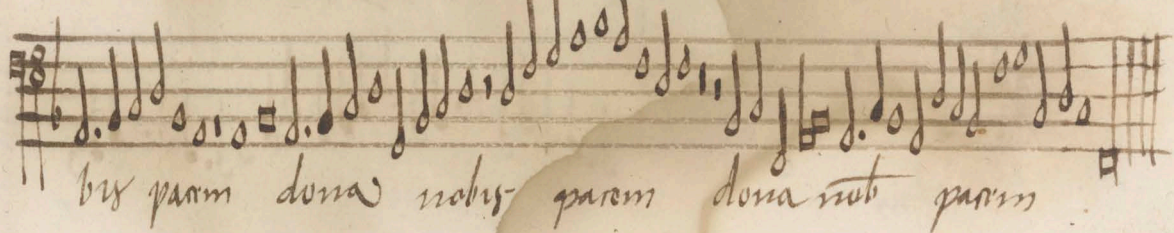 bis pacem dona nobis pacem dona nob pacem